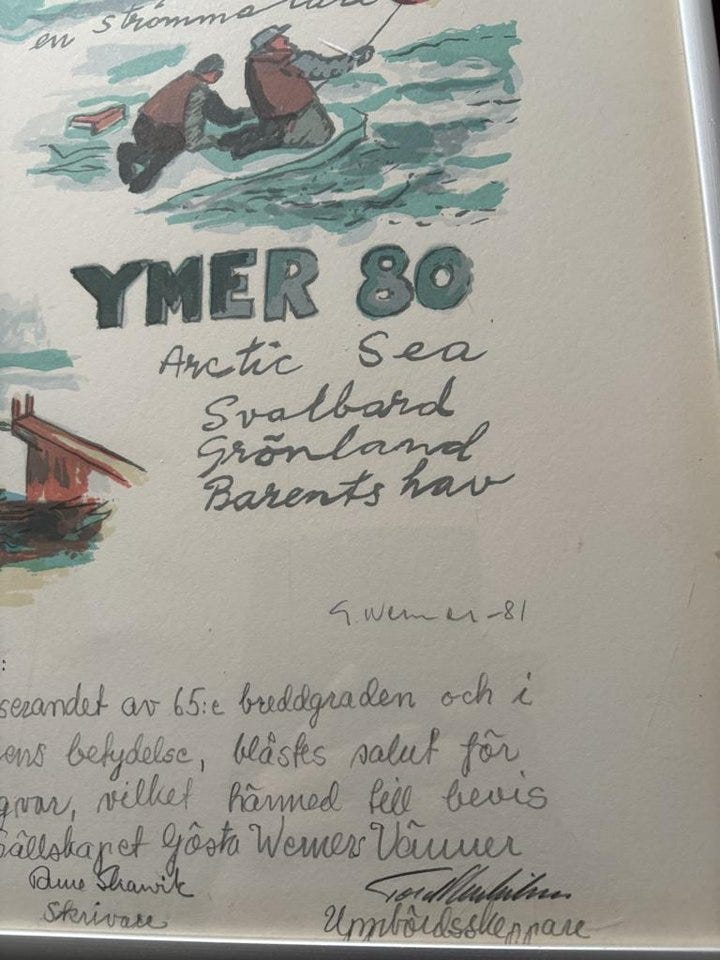 en strömma
YMER 80
Arctic Sea
Svalbard
Grönland
Barents hav
G. Werner -81
:
serandet av 65:e breddgraden och i
ens betydelse, blåstes salut för
gvar, vilket härmed till bevis
Sällskapet Gösta Werners Vänner
Skrivare
Uppbördsskeppare